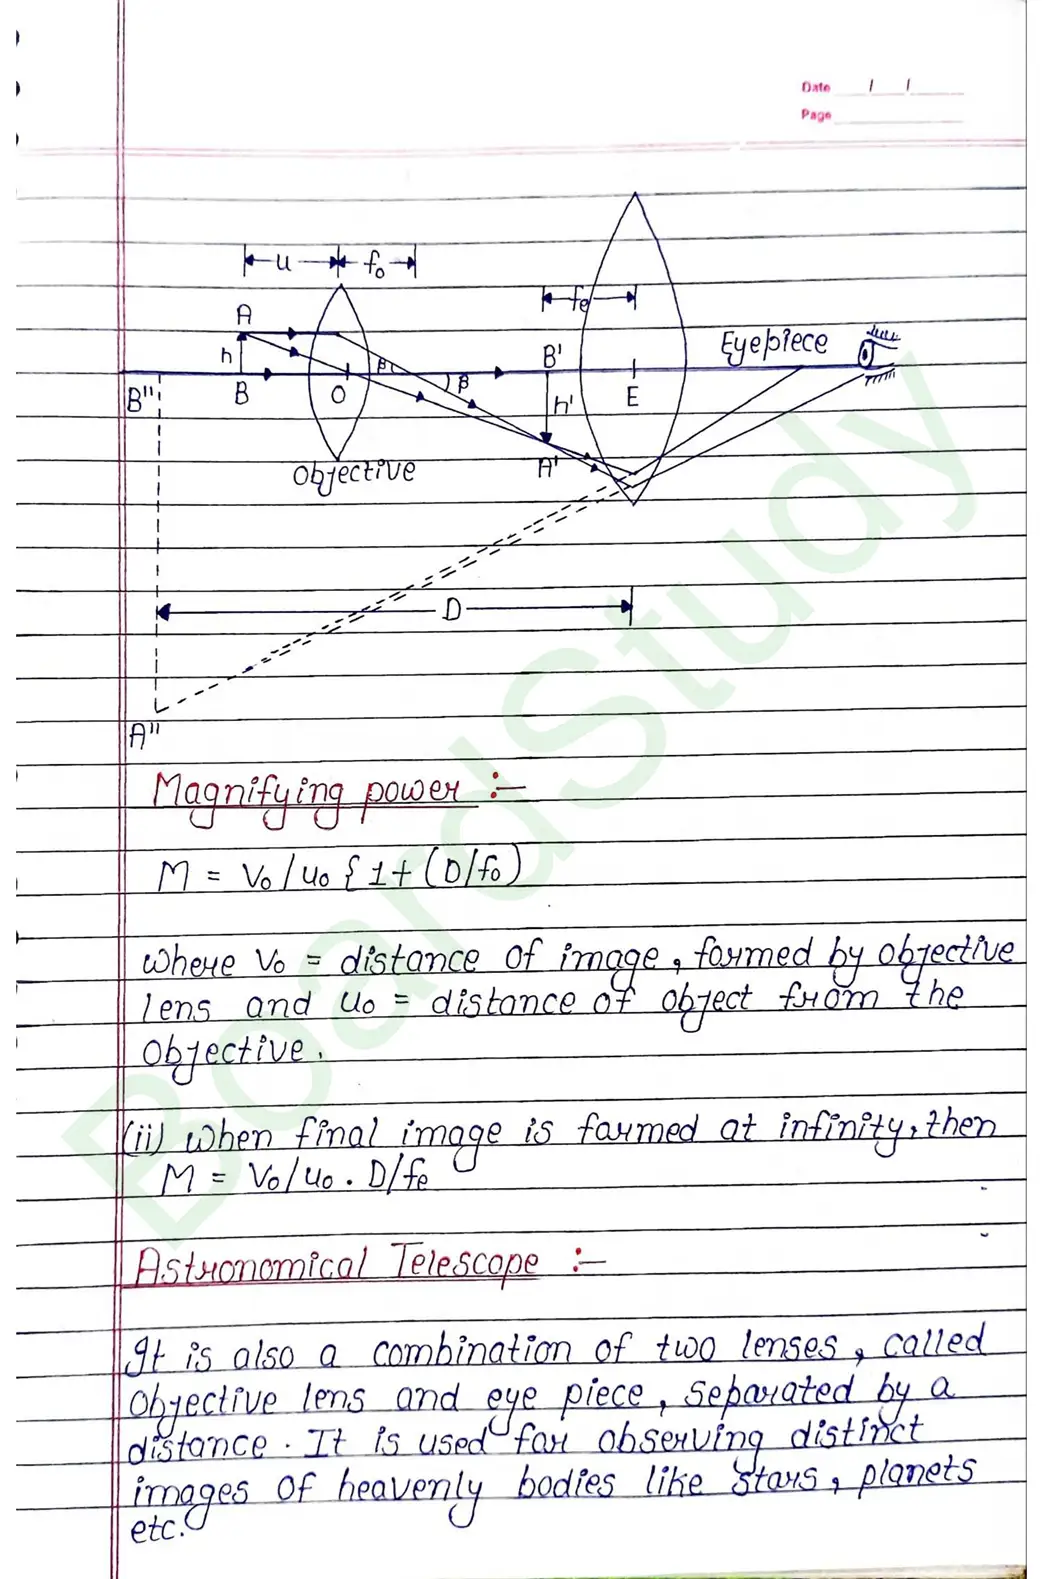 Date / /
Page
u f₀
fe
A
h
B'' B O β β B' E Eyepiece
h'
A'
Objective
D
A''
Magnifying power :-
M = V₀/u₀ { 1 + (D/f₀)
where V₀ = distance of image, formed by objective
lens and u₀ = distance of object from the
objective.
(ii) when final image is formed at infinity, then
M = V₀/u₀ . D/fe
Astronomical Telescope :-
It is also a combination of two lenses, called
objective lens and eye piece, separated by a
distance. It is used for observing distinct
images of heavenly bodies like stars, planets
etc.
BoardStudy